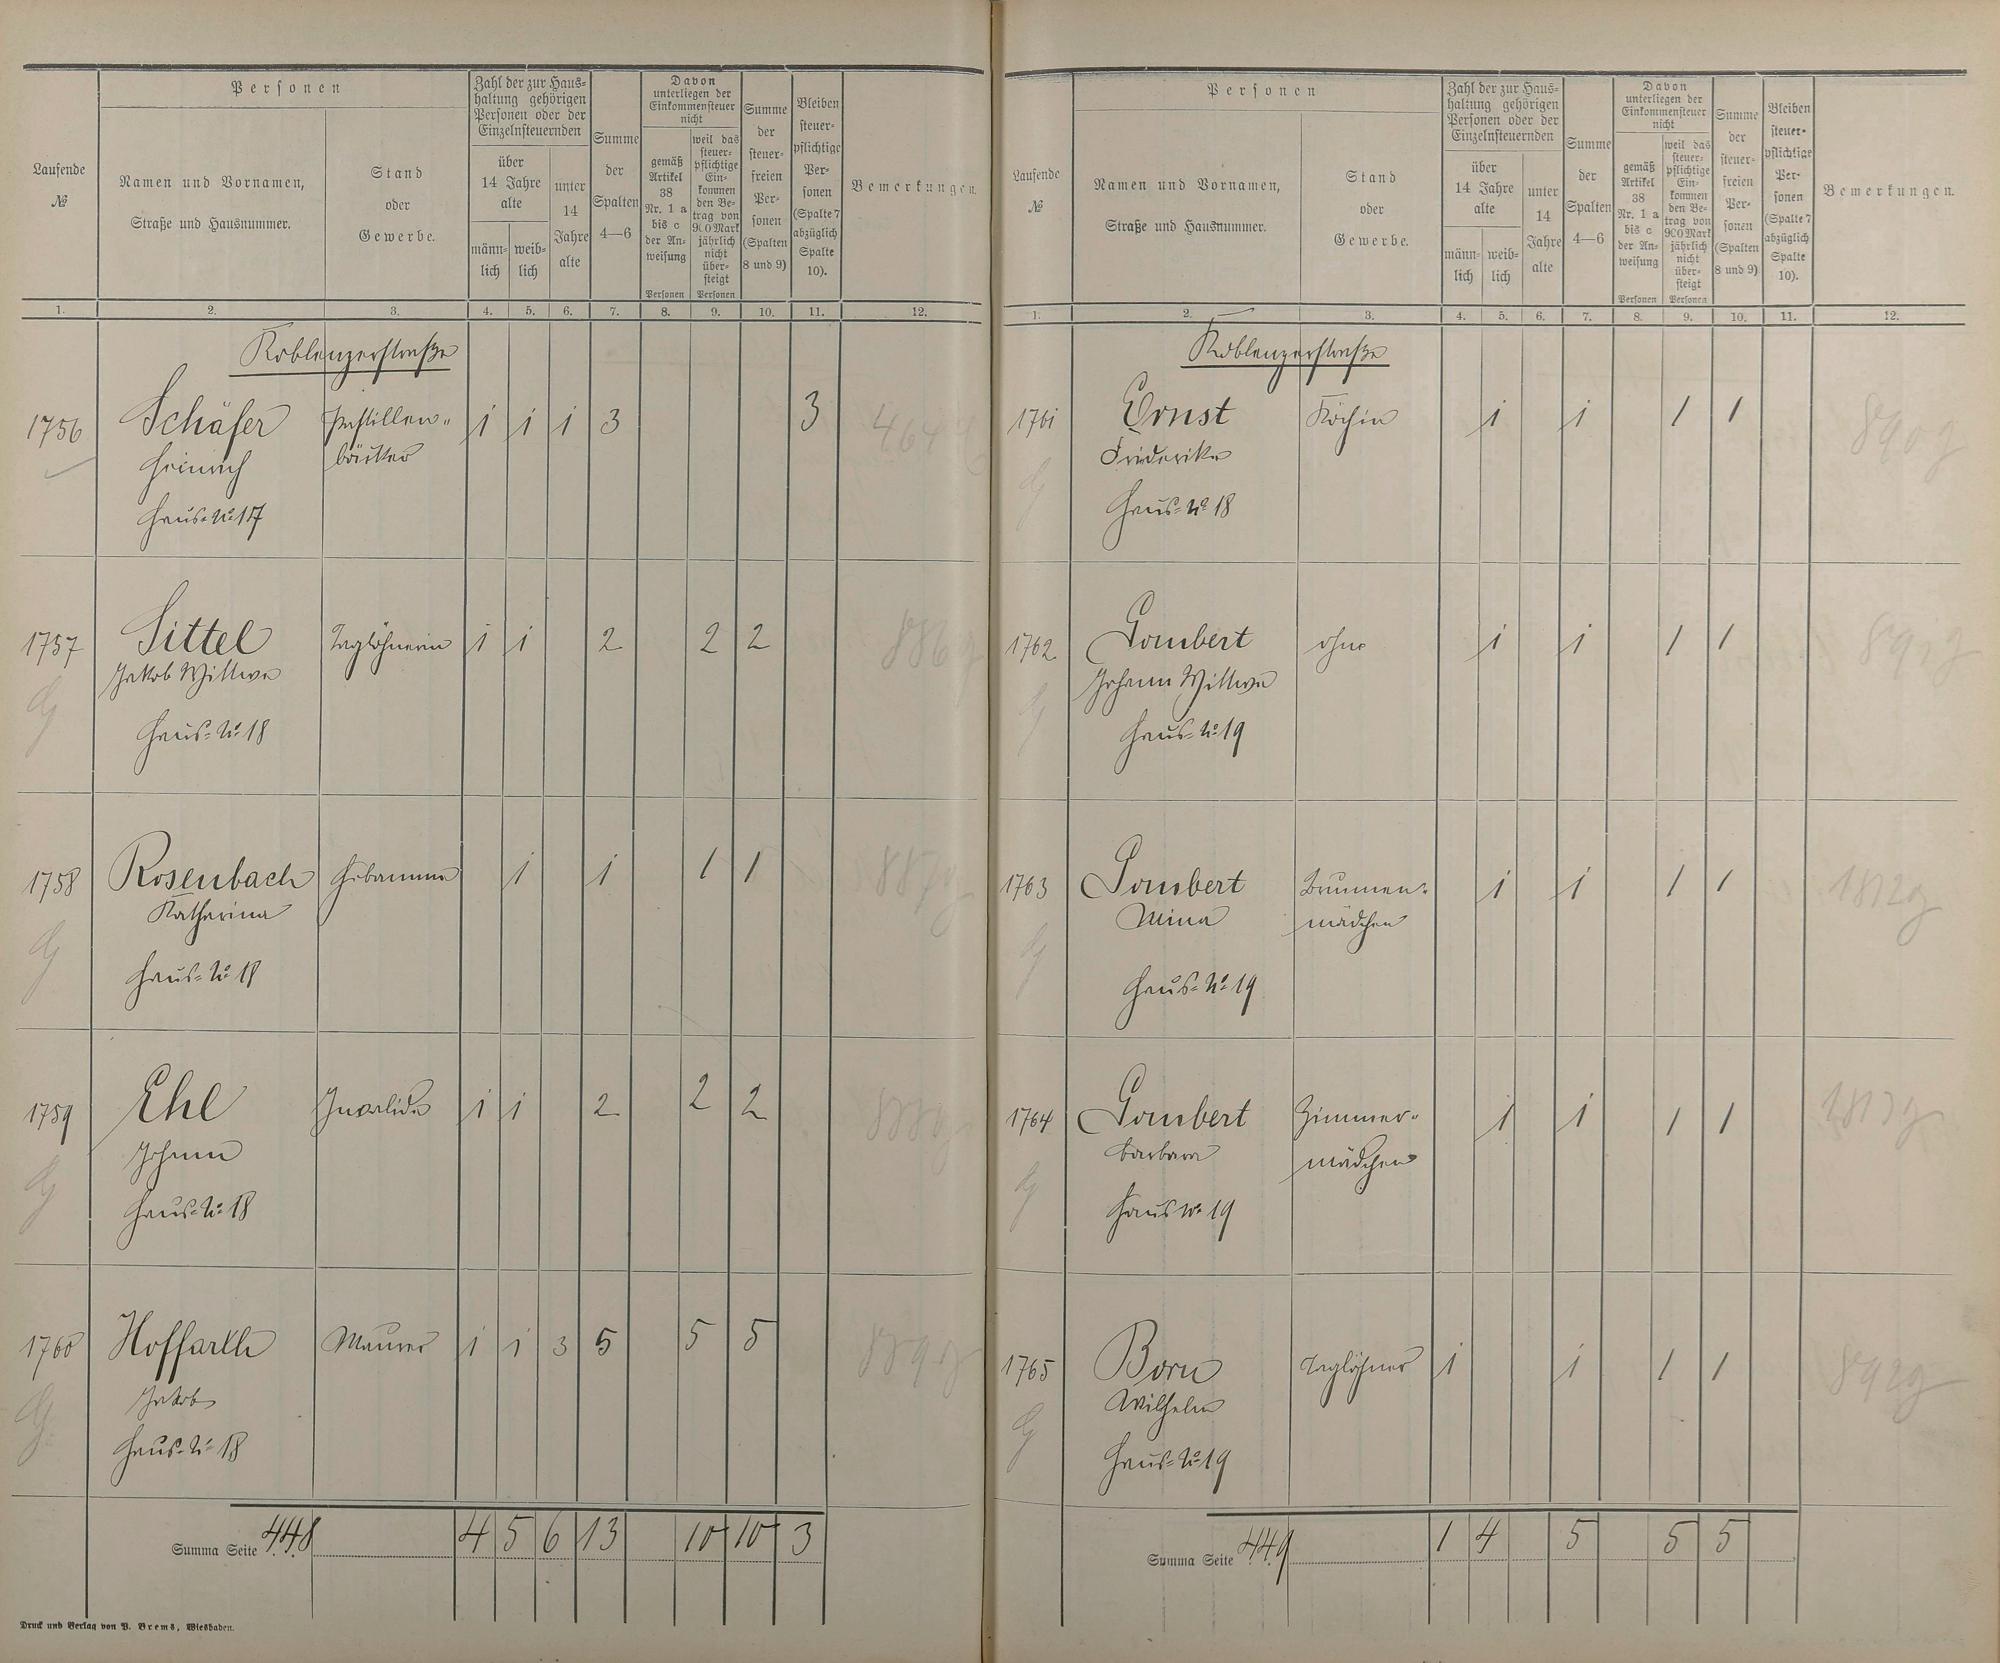 Laufende
№
Personen
Namen und Vornamen,
Straße und Hausnummer.
Stand
oder
Gewerbe.
Zahl der zur Haus-
haltung gehörigen
Personen oder der
Einzelnsteuernden
über
14 Jahre
alte
männ-
lich
weib-
lich
unter
14
Jahre
alte
Summe
der
Spalten
4—6
Davon
unterliegen der
Einkommensteuer
nicht
gemäß
Artikel
38
Nr. 1 a
bis c
der An-
weisung
Personen
weil das
steuer-
pflichtige
Ein-
kommen
den Be-
trag von
900 Mark
jährlich
nicht
über-
steigt
Personen
Summe
der
steuer-
freien
Per-
sonen
(Spalten
8 und 9)
Bleiben
steuer-
pflichtige
Per-
sonen
(Spalte 7
abzüglich
Spalte
10).
Bemerkungen.
1. 2. 3. 4. 5. 6. 7. 8. 9. 10. 11. 12.
Koblenzerstraße
1756 Schäfer Pastillen- 1 1 1 3 3 464
Heinrich bäcker
Haus-No 17
1757 Sittel Taglöhnerin 1 1 2 2 2 886
Jakob Wittwe
Haus-No 18
1758 Rosenbach Hebamme 1 1 1 1 887
Katharina
Haus-No 18
1759 Ehl Invalide 1 1 2 2 2 888
Johann
Haus-No 18
1760 Hoffarth Maurer 1 1 3 5 5 5 889
Jakob
Haus-No 18
Summa Seite 448 4 5 6 13 10 10 3
Druck und Verlag von P. Brems, Wiesbaden.
Laufende
№
Personen
Namen und Vornamen,
Straße und Hausnummer.
Stand
oder
Gewerbe.
Zahl der zur Haus-
haltung gehörigen
Personen oder der
Einzelnsteuernden
über
14 Jahre
alte
männ-
lich
weib-
lich
unter
14
Jahre
alte
Summe
der
Spalten
4—6
Davon
unterliegen der
Einkommensteuer
nicht
gemäß
Artikel
38
Nr. 1 a
bis c
der An-
weisung
Personen
weil das
steuer-
pflichtige
Ein-
kommen
den Be-
trag von
900 Mark
jährlich
nicht
über-
steigt
Personen
Summe
der
steuer-
freien
Per-
sonen
(Spalten
8 und 9)
Bleiben
steuer-
pflichtige
Per-
sonen
(Spalte 7
abzüglich
Spalte
10).
Bemerkungen.
1. 2. 3. 4. 5. 6. 7. 8. 9. 10. 11. 12.
Koblenzerstraße
1761 Ernst Köchin 1 1 1 1 890
Friderike
Haus-No 18
1762 Gombert ohne 1 1 1 1 891
Johann Wittwe
Haus-No 19
1763 Gombert Brunnen- 1 1 1 1 1812
Mina mädchen
Haus-No 19
1764 Gombert Zimmer- 1 1 1 1 1813
Barbara mädchen
Haus No 19
1765 Born Taglöhner 1 1 1 1 892
Wilhelm
Haus-No 19
Summa Seite 449 1 4 5 5 5